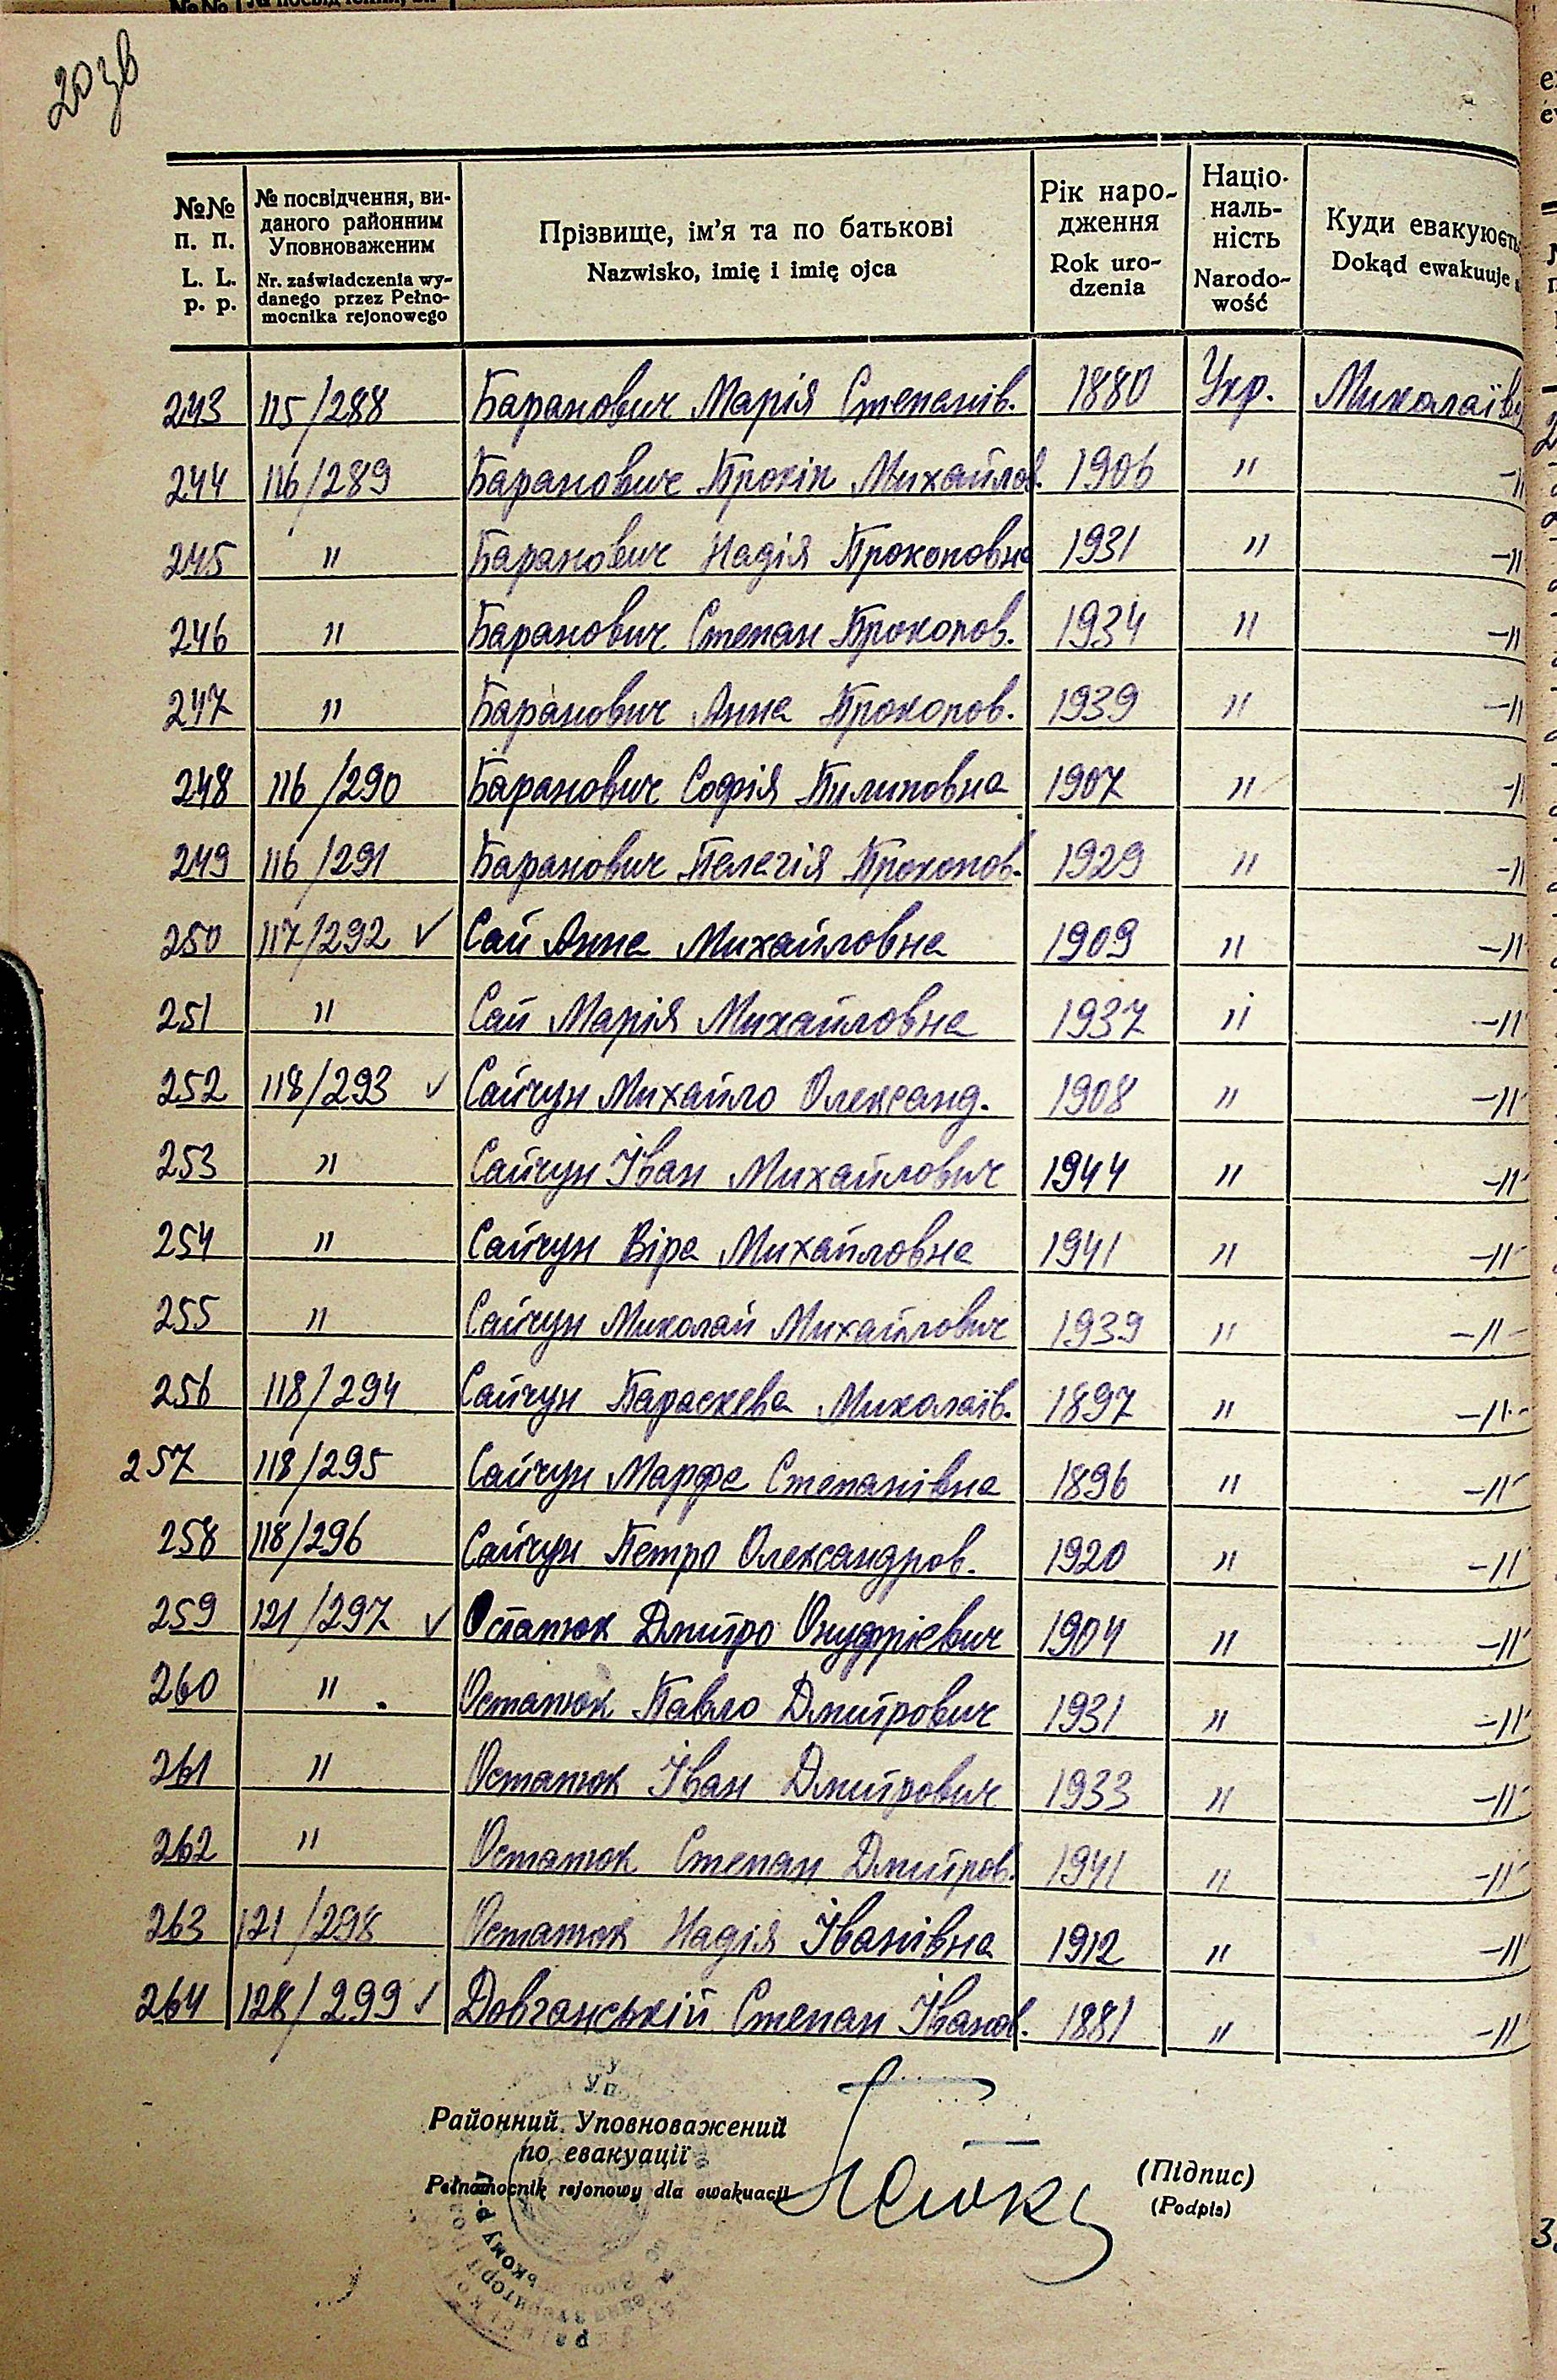 203в
№№ п. п. L. L. p. p.
№ посвідчення, ви-
даного районним
Уповноваженим
Nr. zaświadczenia wy-
danego przez Pełno-
mocnika rejonowego
Прізвище, ім'я та по батькові
Nazwisko, imię i imię ojca
Рік наро-
дження
Rok uro-
dzenia
Націо-
наль-
ність
Narodo-
wość
Куди евакуюєть
Dokąd ewakuuje
243 115/288 Баранович Марія Степанів. 1880 Укр. Миколаївс
244 116/289 Баранович Прокіп Михайлов. 1906 " -"
245 " Баранович Надія Прокоповна 1931 " -"
246 " Баранович Степан Прокопов. 1934 " -"
247 " Баранович Анна Прокопов. 1939 " -"
248 116/290 Баранович Софія Пилиповна 1907 " -"
249 116/291 Баранович Пелагія Прокопов. 1929 " -"
250 117/292 ✓ Сай Анна Михайловна 1909 " -"
251 " Сай Марія Михайловна 1937 " -"
252 118/293 ✓ Сайчун Михайло Олександ. 1908 " -"
253 " Сайчун Іван Михайлович 1944 " -"
254 " Сайчун Віра Михайловна 1941 " -"-
255 " Сайчун Миколай Михайлович 1939 " -"-
256 118/294 Сайчун Параскева Миколаїв. 1897 " -"-
257 118/295 Сайчун Марфа Степанівна 1896 " -"-
258 118/296 Сайчун Петро Олександров. 1920 " -"-
259 121/297 ✓ Остапюк Дмитро Онуфрієвич 1904 " -"-
260 " Остапюк Павло Дмитрович 1931 " -"-
261 " Остапюк Іван Дмитрович 1933 " -"-
262 " Остапюк Степан Дмитров. 1941 " -"-
263 121/298 Остапюк Надія Іванівна 1912 " -"
264 128/299 ✓ Довганській Степан Іванов. 1881 " -"
Районний Уповноважений
по евакуації
Pełnomocnik rejonowy dla ewakuacji
(Підпис)
(Podpis)